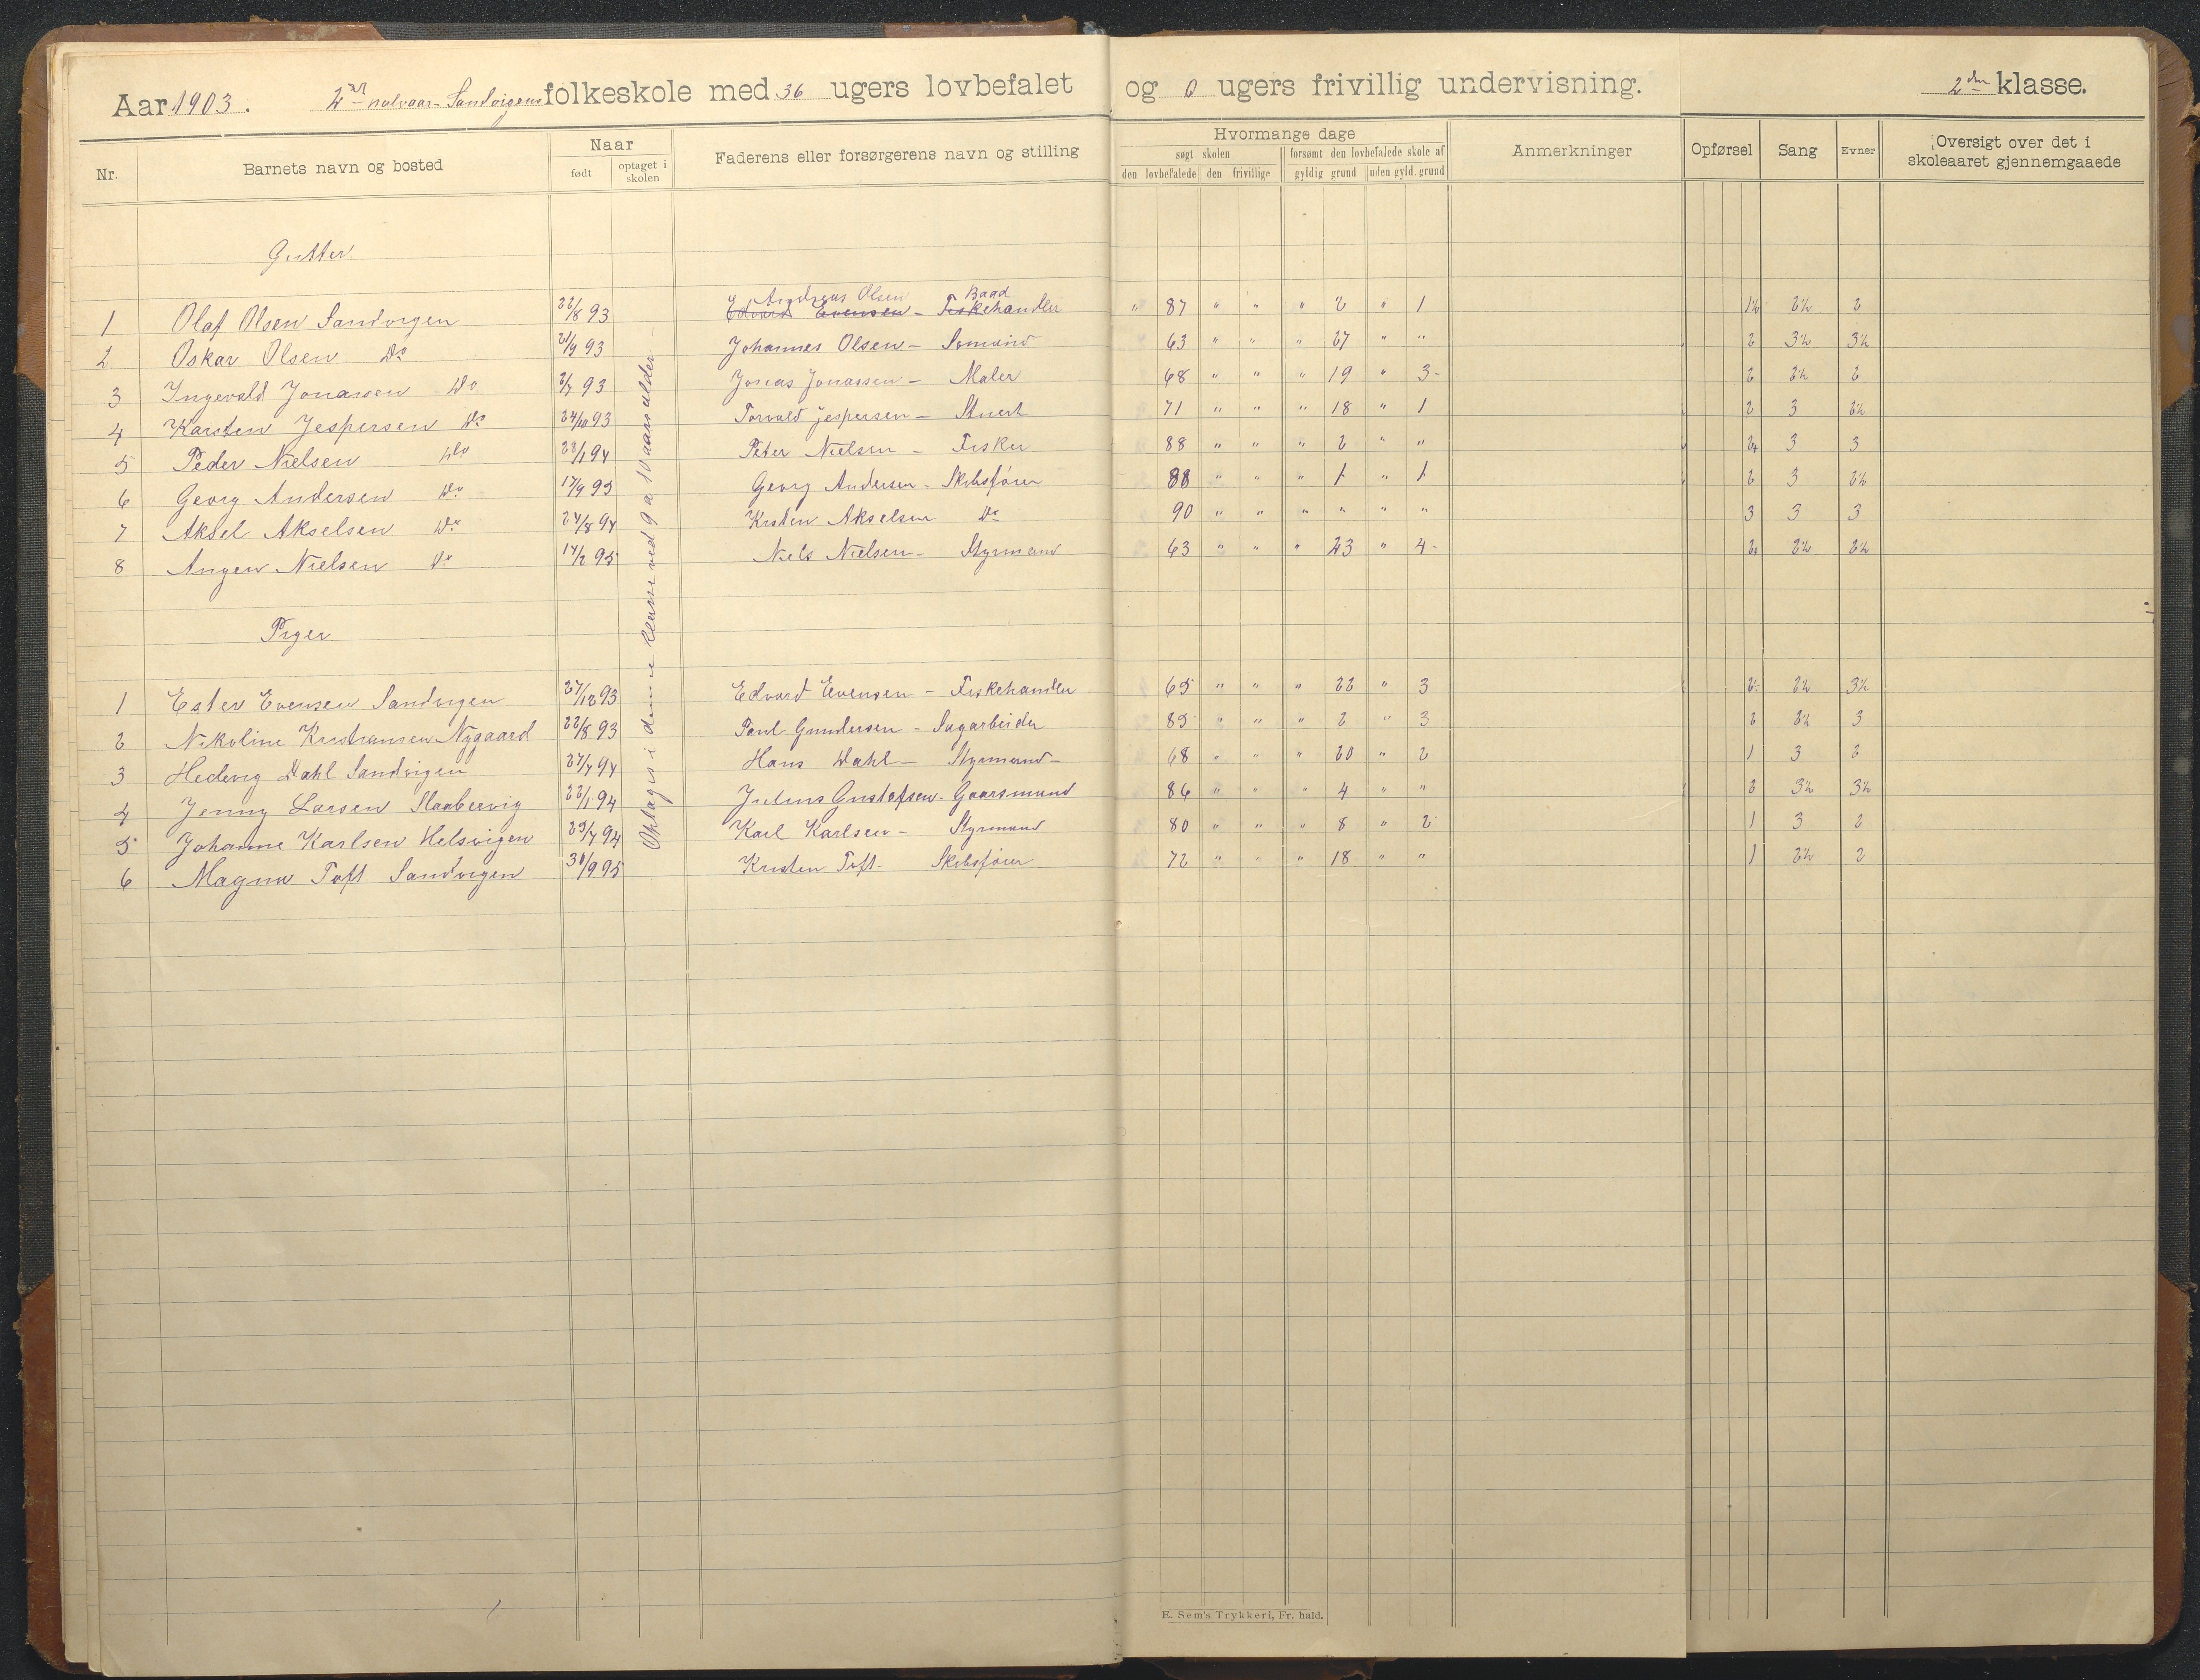 Aar 1903. 2det halvaar Sandvigens folkeskole med 36 ugers lovbefalet og 0 ugers frivillig undervisning. 2den klasse.
Nr. Barnets navn og bosted Naar født optaget i skolen Faderens eller forsørgerens navn og stilling Hvormange dage søgt skolen den lovbefalede den frivillige forsømt den lovbefalede skole af gyldig grund uden gyld. grund Anmerkninger Opførsel Sang Evner Oversigt over det i skoleaaret gjennemgaaede
Gutter
Andreas Olsen Baad
1 Olaf Olsen Sandvigen 22/8 93 Edvard Evensen - Fiskehandler " 87 " " " 2 " 1 1½ 2½ 2
2 Oskar Olsen Do 21/9 93 Johannes Olsen - Sømand 63 " " " 27 " " 2 3½ 3½
3 Ingevald Jonassen Do 2/7 93 Jonas Jonassen - Maler 68 " " " 19 " 3- 2 2½ 2
4 Karsten Jespersen Do 24/10 93 Torvald Jespersen - Stuert 71 " " " 18 " 1 2 3 2½
5 Peder Nielsen Do 22/1 94 Peter Nielsen - Fisker 88 " " " 2 " " 2+ 3 3
6 Georg Andersen Do 17/9 95 Georg Andersen - Skibsfører 88 " " " 1 " 1 2 3 2½
7 Aksel Akselsen Do 24/8 94 Kristen Akselsen Do 90 " " " " " " 3 3 3
8 Angen Nielsen Do 14/2 95 Niels Nielsen - Styrmand 63 " " " 23 " 4- 2+ 2½ 2½
Piger
1 Ester Evensen Sandvigen 27/12 93 Edvard Evensen - Fiskehandler 65 " " " 22 " 3 2- 2½ 3½
2 Nikoline Kristiansen Nygaard 22/8 93 Paul Gundersen - Sagarbeider 85 " " " 2 " 3 2 2½ 3
3 Hedevig Dahl Sandvigen 27/7 94 Hans Dahl - Styrmand - 68 " " " 20 " 2 1 3 2
4 Jenny Larsen Staabervig 22/1 94 Julius Gustafsen - Gaarsmand 86 " " " 4 " " 2 3½ 3½
5 Johanne Karlsen Helsvigen 25/7 94 Karl Karlsen - Styrmand 80 " " " 8 " 2 1 3 2
6 Magna Toft Sandvigen 30/9 95 Kristen Toft - Skibsfører 72 " " " 18 " " 1 2½ 2
Optages i denne klasse ved 9 a 10 aars alder
E. Sem's Trykkeri, Fr. hald.